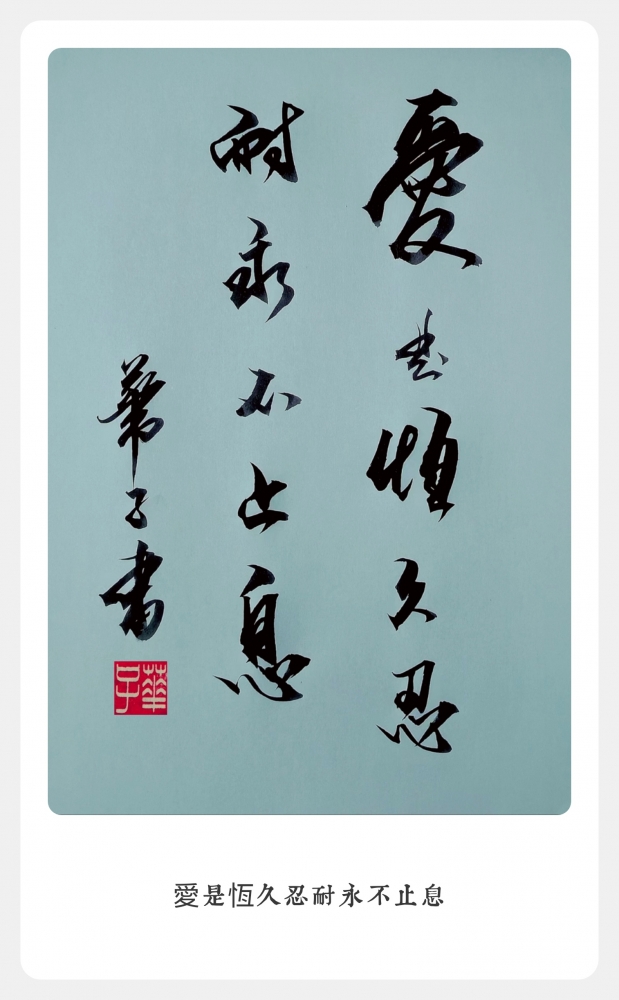 愛是恆久忍
耐永不止息
華子書
華子
愛是恆久忍耐永不止息